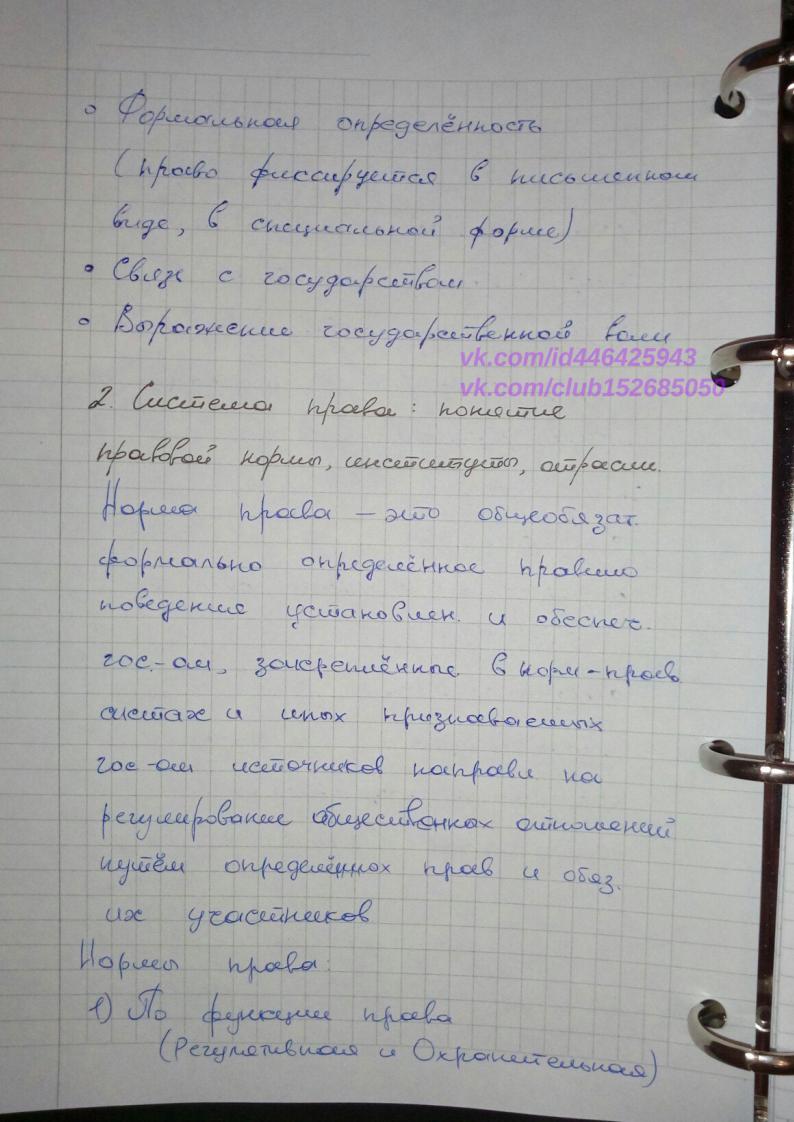 • Формальная определённость
(право фиксируется в письменном
виде, в специальной форме)
• Связь с государством
• Выражение государственной воли
vk.com/id446425943
vk.com/club152685050
2. Система права: понятие
правовой нормы, институты, отрасли.
Норма права – это общеобязат.
формально определённое правило
поведение установлен. и обеспеч.
гос.-ом, закреплённые в норм-прав
актах и иных признаваемых
гос-ом источников направл на
регулирование общественных отношений
путём определённых прав и обяз.
их участников
Нормы права:
1) По функции права
(Регулятивная и Охранительная)